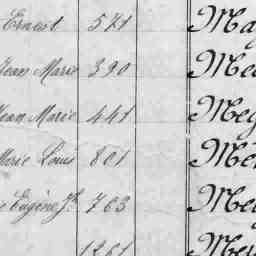 Ernest 571 Ma
Jean Marie 390 Me
Jean Marie 441 Meg
Marie Louis 801 Mé
Eugène Jh 763 Me
1261 Mey